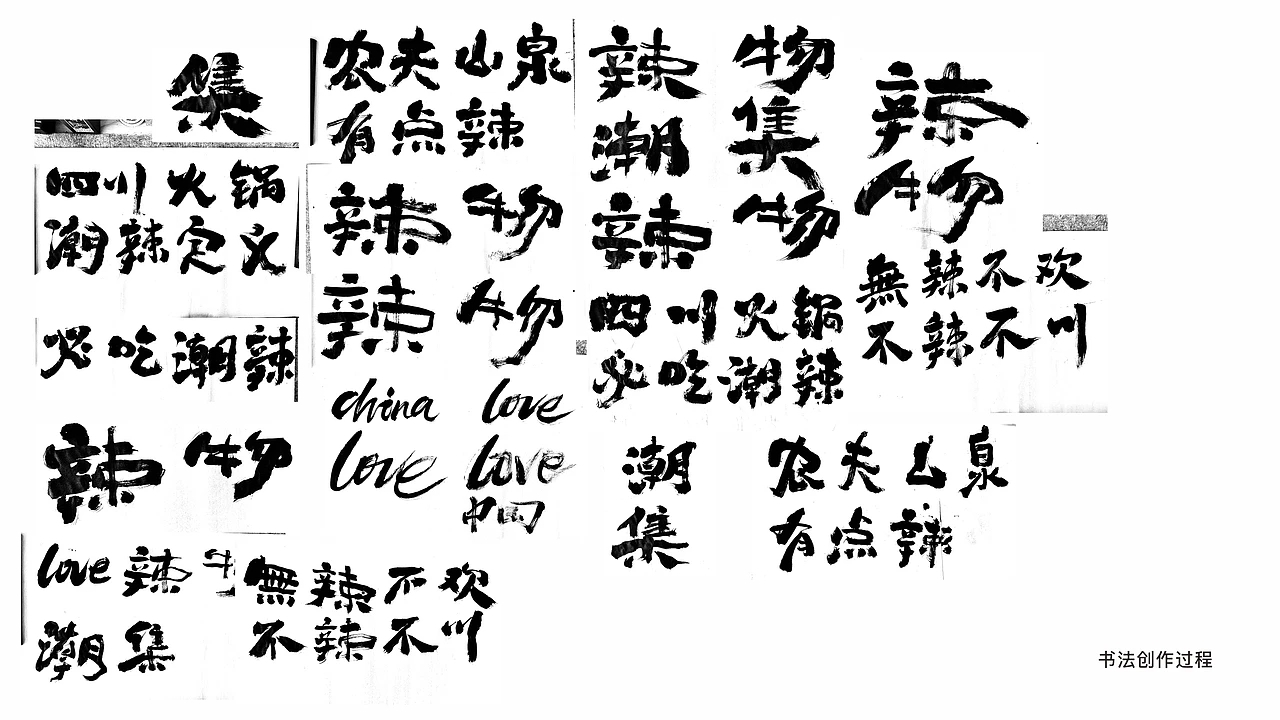 集
四川火锅
潮辣定义
必吃潮辣
辣物
love辣牛
潮集
無辣不欢
不辣不川
农夫山泉
有点辣
辣物
辣物
china love
love love
中国
辣物
潮集
辣物
四川火锅
必吃潮辣
潮
集
农夫山泉
有点辣
辣
物
無辣不欢
不辣不川
书法创作过程